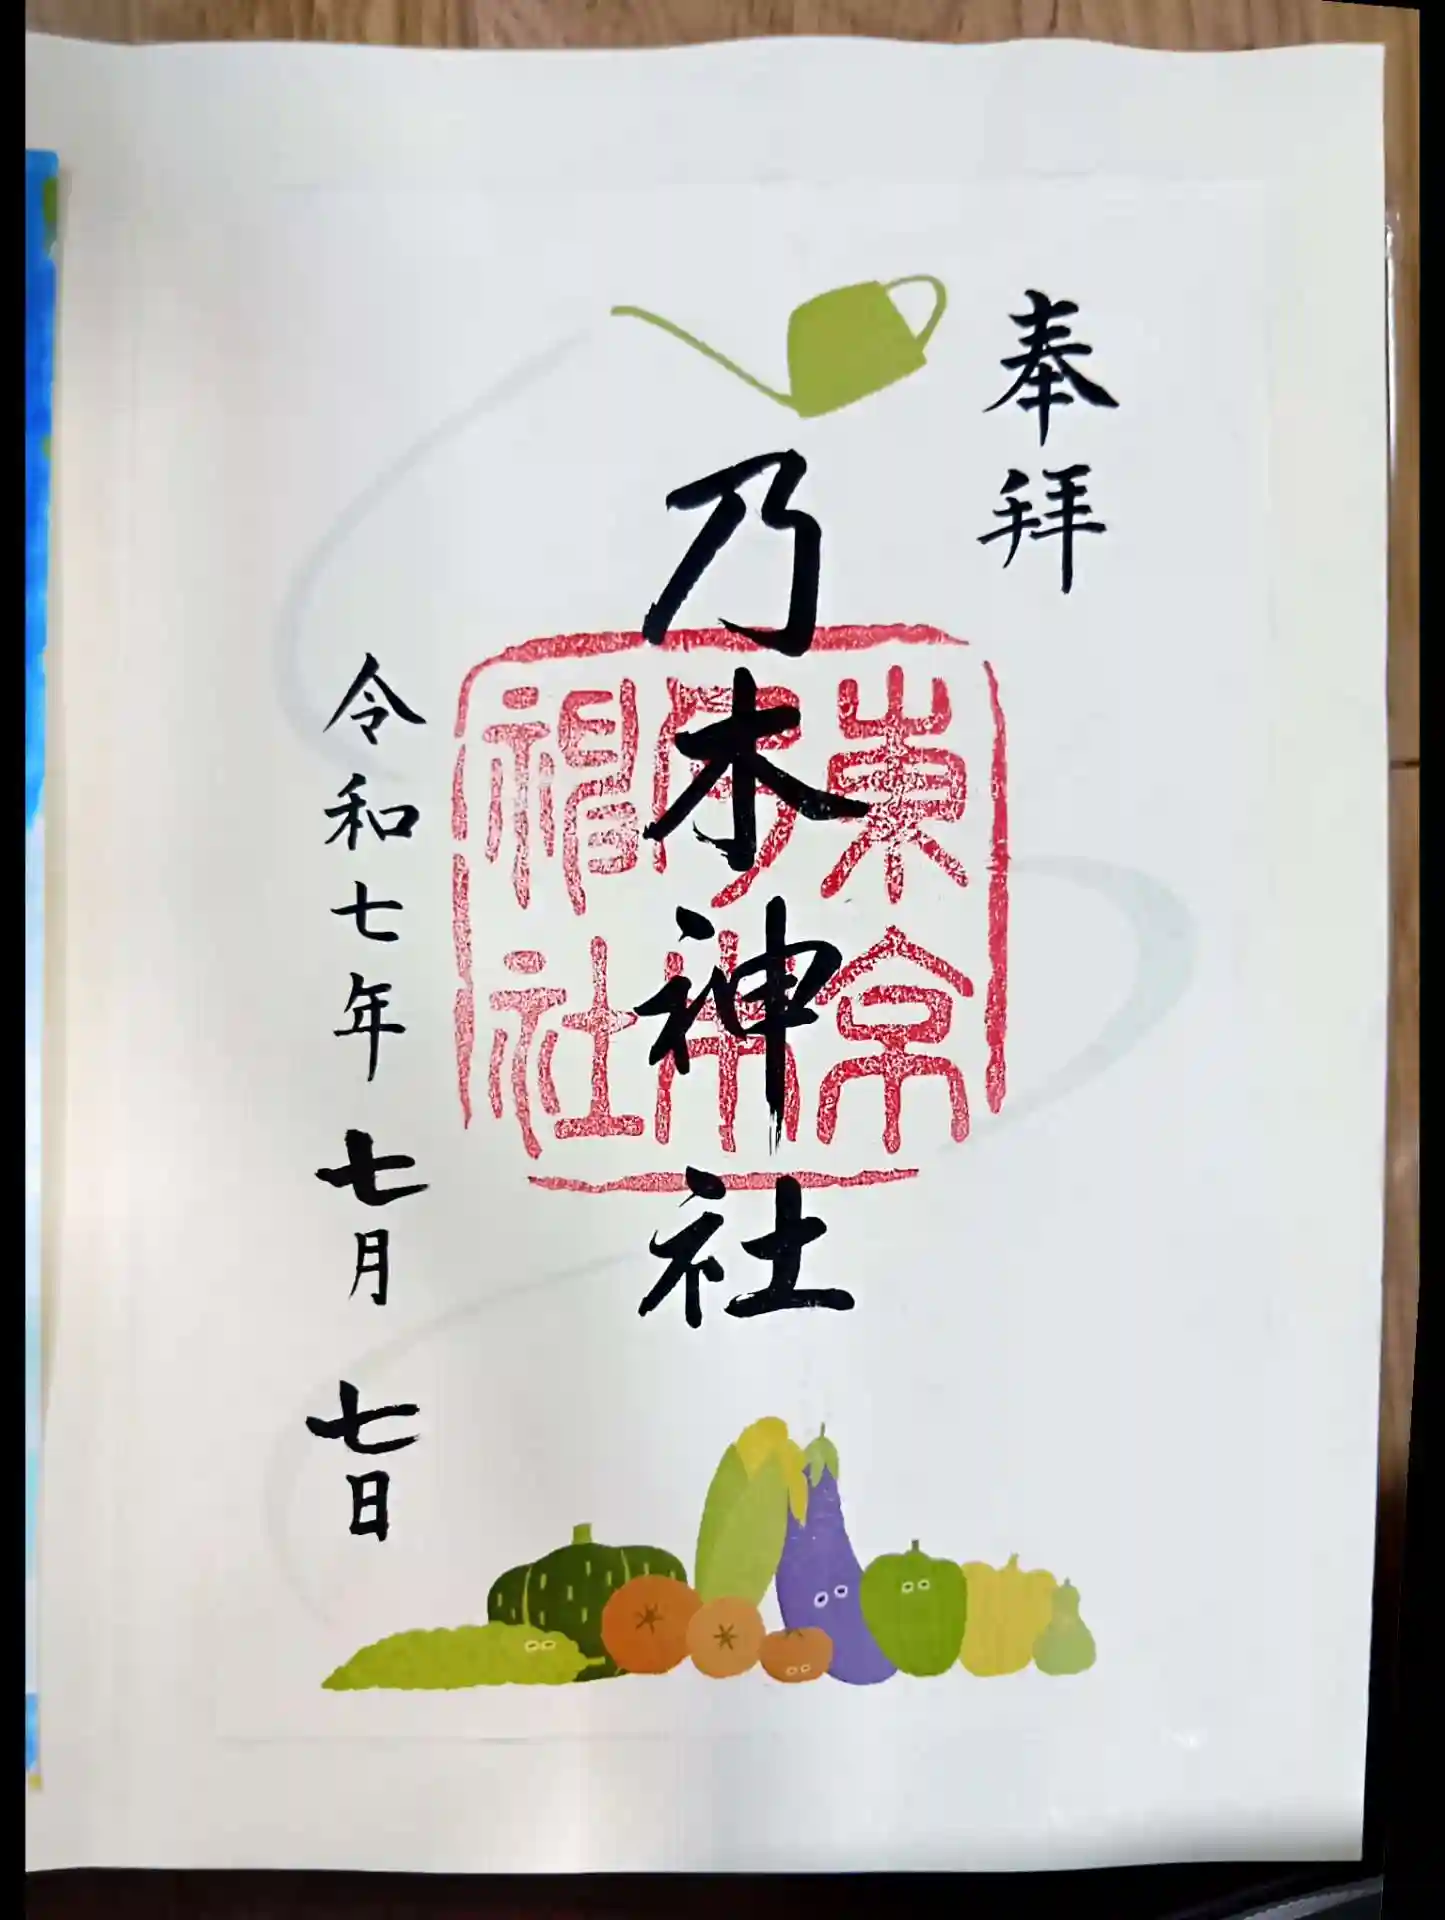 奉拝
乃木神社
東京
乃木
神社
令和七年七月七日